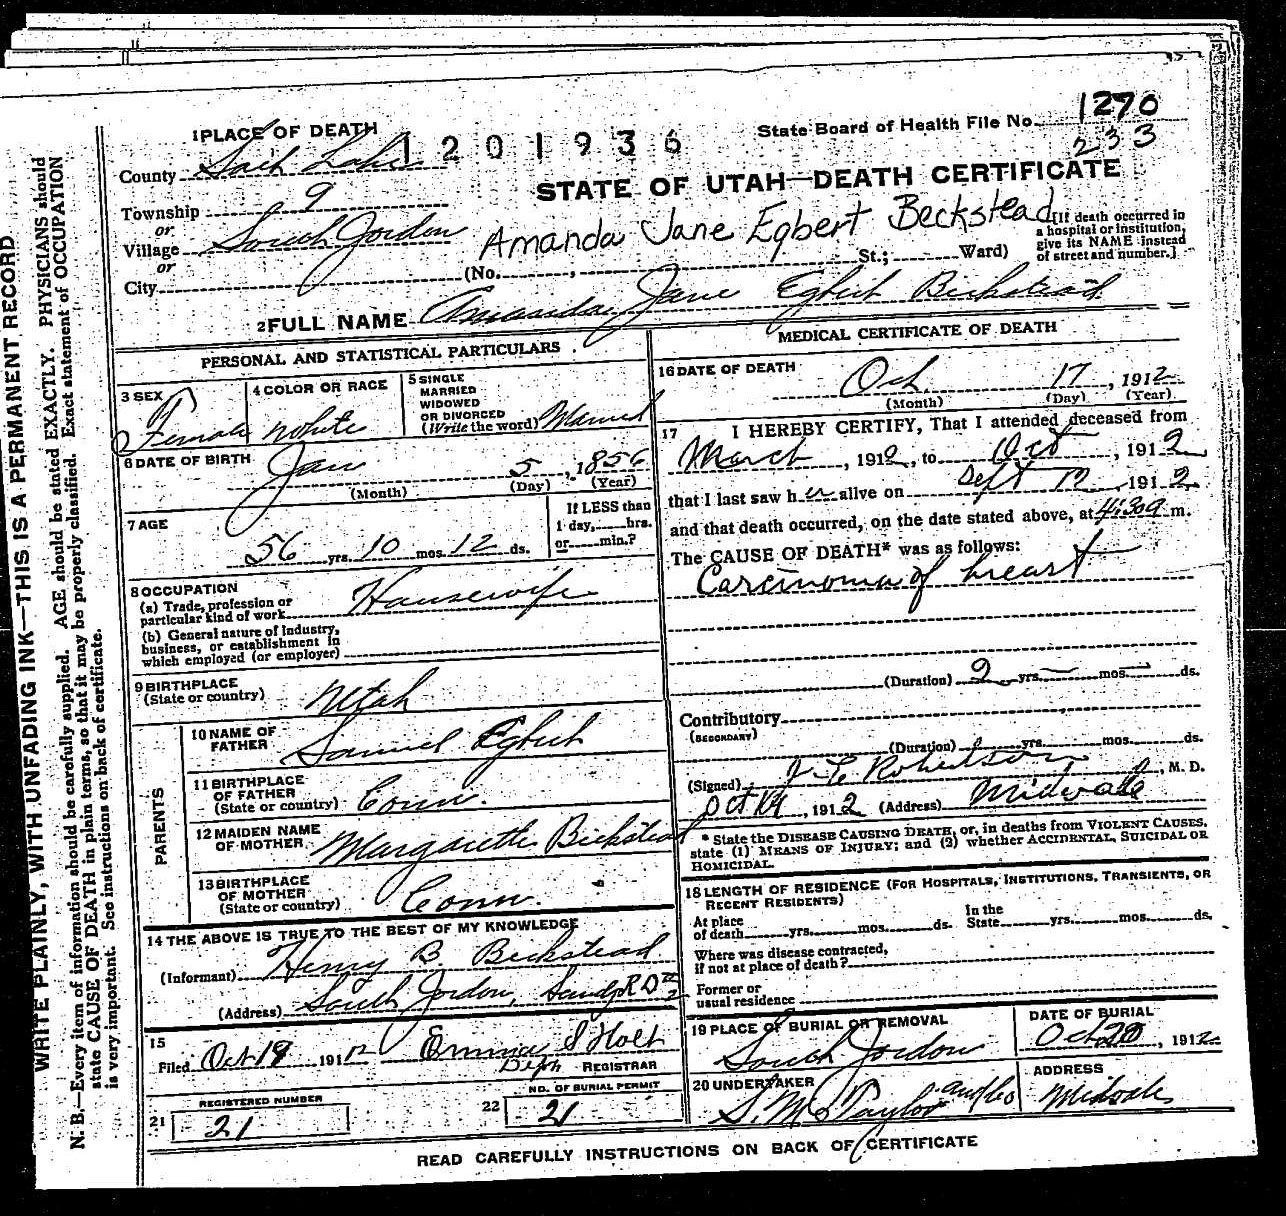 1270
233
1201936
State Board of Health File No.
STATE OF UTAH—DEATH CERTIFICATE
1 PLACE OF DEATH
County Salt Lake
Township 9
or
Village South Jordan
or
City
Amanda Jane Egbert Beckstead
(No. , St.; Ward)
[If death occurred in
a hospital or institution,
give its NAME instead
of street and number.]
2 FULL NAME Amanda Jane Egbert Beckstead
PERSONAL AND STATISTICAL PARTICULARS
3 SEX
Female
4 COLOR OR RACE
white
5 SINGLE
MARRIED
WIDOWED
OR DIVORCED
(Write the word) Married
6 DATE OF BIRTH
Jan 5, 1856
(Month) (Day) (Year)
7 AGE
56 yrs. 10 mos. 12 ds.
If LESS than
1 day, hrs.
or min.?
8 OCCUPATION
(a) Trade, profession or
particular kind of work Housewife
(b) General nature of industry,
business, or establishment in
which employed (or employer)
9 BIRTHPLACE
(State or country) Utah
PARENTS
10 NAME OF
FATHER Samuel Egbert
11 BIRTHPLACE
OF FATHER
(State or country) Conn.
12 MAIDEN NAME
OF MOTHER Margarette Beckstead
13 BIRTHPLACE
OF MOTHER
(State or country) Conn.
14 THE ABOVE IS TRUE TO THE BEST OF MY KNOWLEDGE
(Informant) Henry B. Beckstead
(Address) South Jordan, Sandy R D 2
15
Filed Oct 19 1912 Emma S Holt
Dept REGISTRAR
REGISTERED NUMBER
21 21
NO. OF BURIAL PERMIT
22 21
MEDICAL CERTIFICATE OF DEATH
16 DATE OF DEATH
Oct 17, 1912
(Month) (Day) (Year)
17 I HEREBY CERTIFY, That I attended deceased from
March, 1912, to Oct, 1912,
that I last saw her alive on Sept 12 1912
and that death occurred, on the date stated above, at 4:30a m.
The CAUSE OF DEATH* was as follows:
Carcinoma of breast
(Duration) 2 yrs. — mos. — ds.
Contributory
(SECONDARY)
(Duration) yrs. mos. ds.
(Signed) J E Robertson, M. D.
Oct 19, 1912 (Address) Midvale
* State the DISEASE CAUSING DEATH, or, in deaths from VIOLENT CAUSES,
state (1) MEANS OF INJURY; and (2) whether ACCIDENTAL, SUICIDAL OR
HOMICIDAL.
18 LENGTH OF RESIDENCE (FOR HOSPITALS, INSTITUTIONS, TRANSIENTS, OR
RECENT RESIDENTS)
At place
of death yrs. mos. ds.
In the
State yrs. mos. ds.
Where was disease contracted,
if not at place of death?
Former or
usual residence
19 PLACE OF BURIAL OR REMOVAL
South Jordan
DATE OF BURIAL
Oct 20, 1912
20 UNDERTAKER
S. M. Taylor and Co
ADDRESS
Midvale
READ CAREFULLY INSTRUCTIONS ON BACK OF CERTIFICATE
WRITE PLAINLY, WITH UNFADING INK—THIS IS A PERMANENT RECORD
N. B.—Every item of information should be carefully supplied. AGE should be stated EXACTLY. PHYSICIANS should
state CAUSE OF DEATH in plain terms, so that it may be properly classified. Exact statement of OCCUPATION
is very important. See instructions on back of certificate.